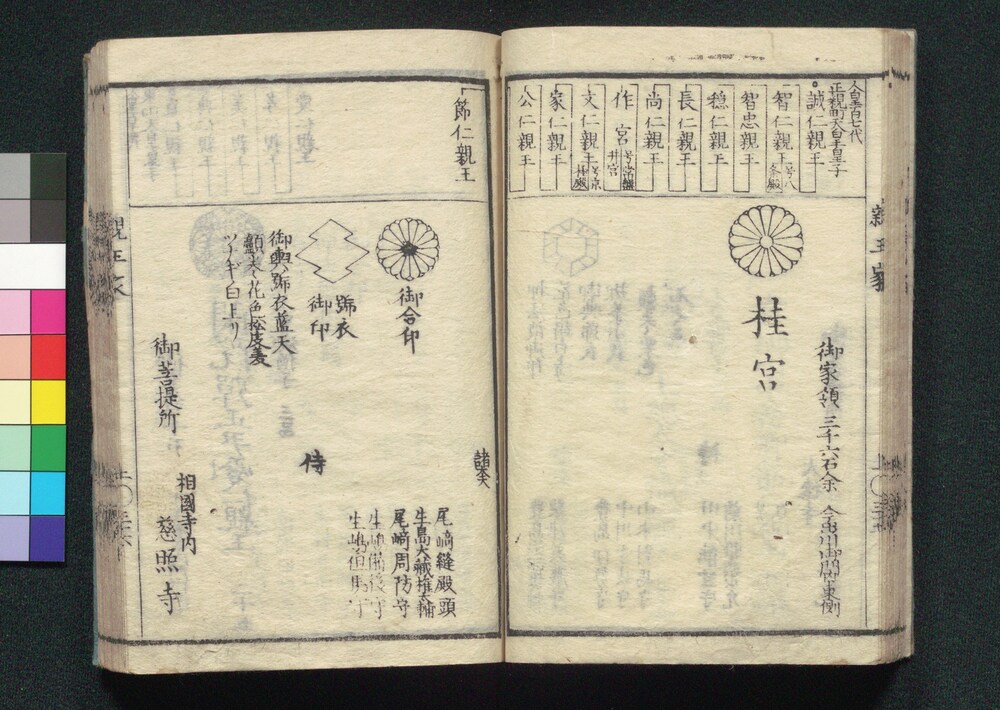 人皇百七代
正親町天皇皇子
誠仁親王
智仁親王 号八条殿
智忠親王
穏仁親王
長仁親王
尚仁親王
作宮 号常盤井宮
文仁親王 号京極殿
家仁親王
公仁親王
親王家
御家領 三千六石余 今出川御門東側
桂宮
節仁親王
諸大夫
尾崎縫殿頭
生島大蔵権大輔
尾崎周防守
生嶋備後守
生嶋但馬守
御合印
侍
號衣
御印
御輿舁衣藍天
花色
ツナギ白上リ
御菩提所
相國寺内
慈照寺
親王家